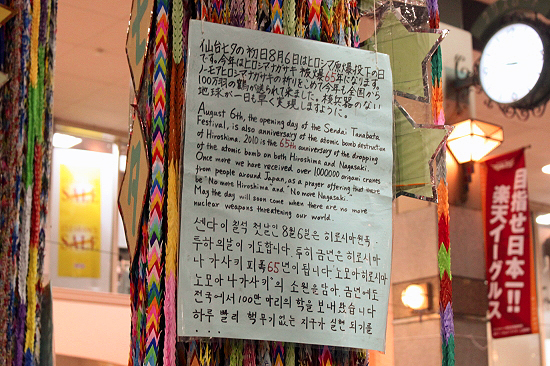 仙台七夕の初日8月6日はヒロシマ原爆投下の日
です。今年はヒロシマナガサキ被爆65年になります。
ノーモアヒロシマナガサキの祈りをこめて今年も全国から
100万羽の鶴が送られて来ました。核兵器のない
地球が一日も早く実現しますように。
August 6th, the opening day of the Sendai Tanabata
Festival, is also anniversary of the atomic bomb destruction
of Hiroshima. 2010 is the 65th anniversary of the dropping
of the atomic bomb on both Hiroshima and Nagasaki.
Once more we have received over 1000000 origami cranes
from people around Japan, as a prayer offering that there
be "No more Hiroshima" and "No more Nagasaki.
May the day will soon come when there are no more
nuclear weapons threatening our world.
센다이 칠석 첫날인 8月6일은 히로시마 원폭
투하의 날이 기도합니다. 특히 금년은 히로시마
나가사키 피폭 65년이 됩니다 "노모아 히로시마
노모아 나가사키"의 소원을 담아 금년에도
전국에서 100만 마리의 학을 보내왔습니다
하루 빨리 핵무기없는 지구가 실현 되기를
....
SALE
SALE
目指せ日本一!!
楽天イーグルス